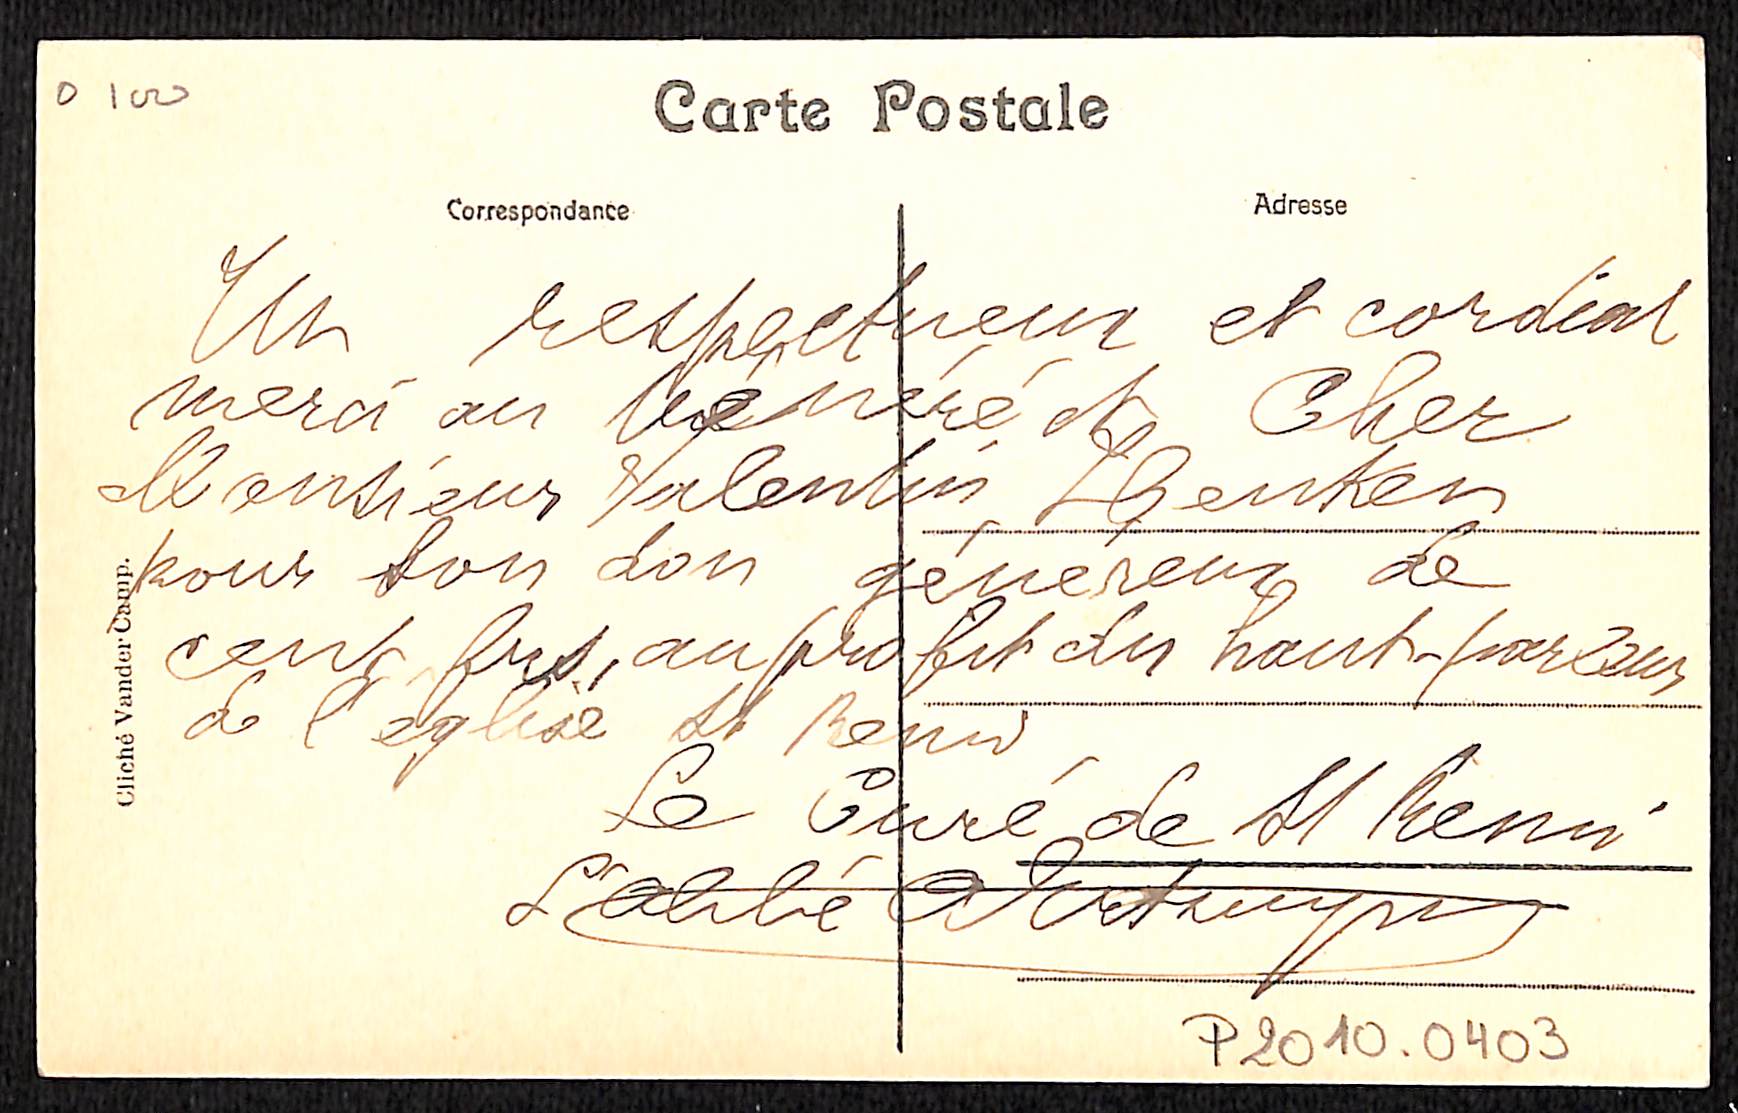 0 100
Carte Postale
Correspondance
Adresse
Un respectueux et cordial
merci au vénéré et Cher
Monsieur Valentin
pour son don généreux de
cent frs, au profit du haut-parleur
de l'église St Remi
Le Curé de St Remi
L'abbé
Cliché Vander Camp.
P2010.0403